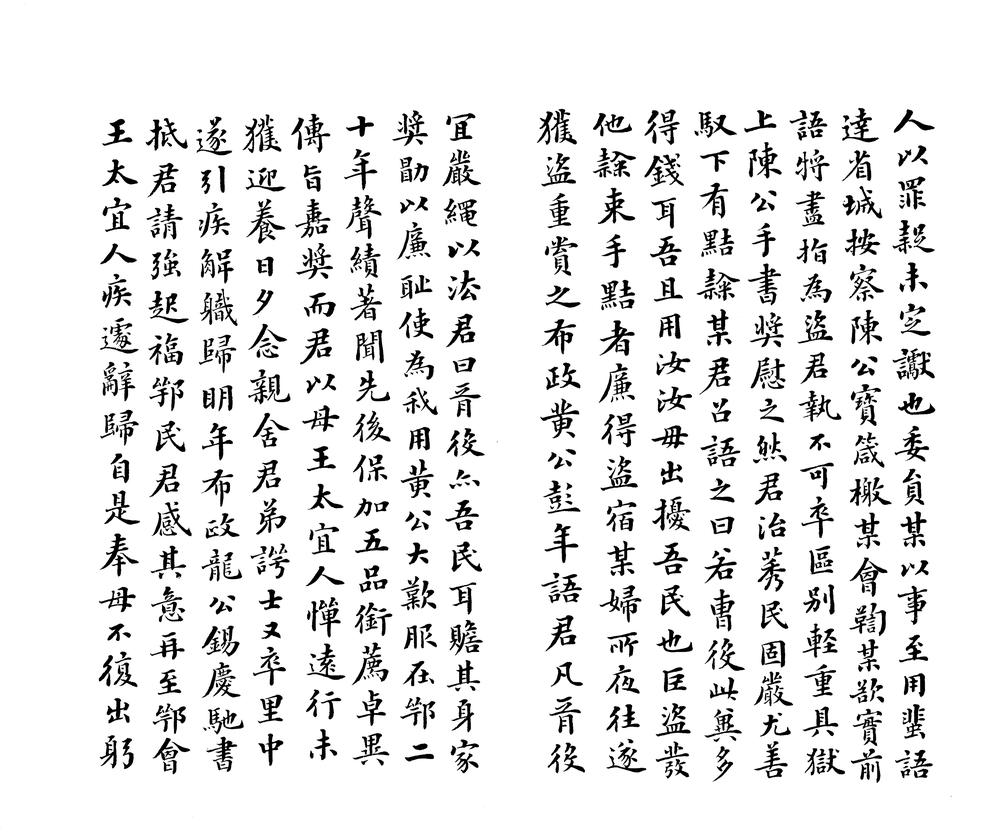 人以罪殺未定讞也委員某以事至用蜚語
達省城按察陳公寶箴檄某會鞫某欲實前
語將盡指為盜君執不可卒區别輕重具獄
上陳公手書奬慰之然君治莠民固嚴尤善
馭下有黠隸某君召語之曰若曹役此冀多
得錢耳吾且用汝汝毋出擾吾民也巨盜發
他隸束手黠者廉得盜宿某婦所夜往遂
獲盜重賞之布政黃公彭年語君凡胥役
宜嚴繩以法君曰胥役亦吾民耳贍其身家
奬勖以廉恥使為我用黃公大歎服在鄂二
十年聲績著聞先後保加五品銜薦卓異
傳旨嘉奬而君以母王太宜人憚遠行未
獲迎養日夕念親舍君弟諤士又卒里中
遂引疾解職歸明年布政龍公錫慶馳書
抵君請強起福鄂民君感其意再至鄂會
王太宜人疾遽辭歸自是奉母不復出躬